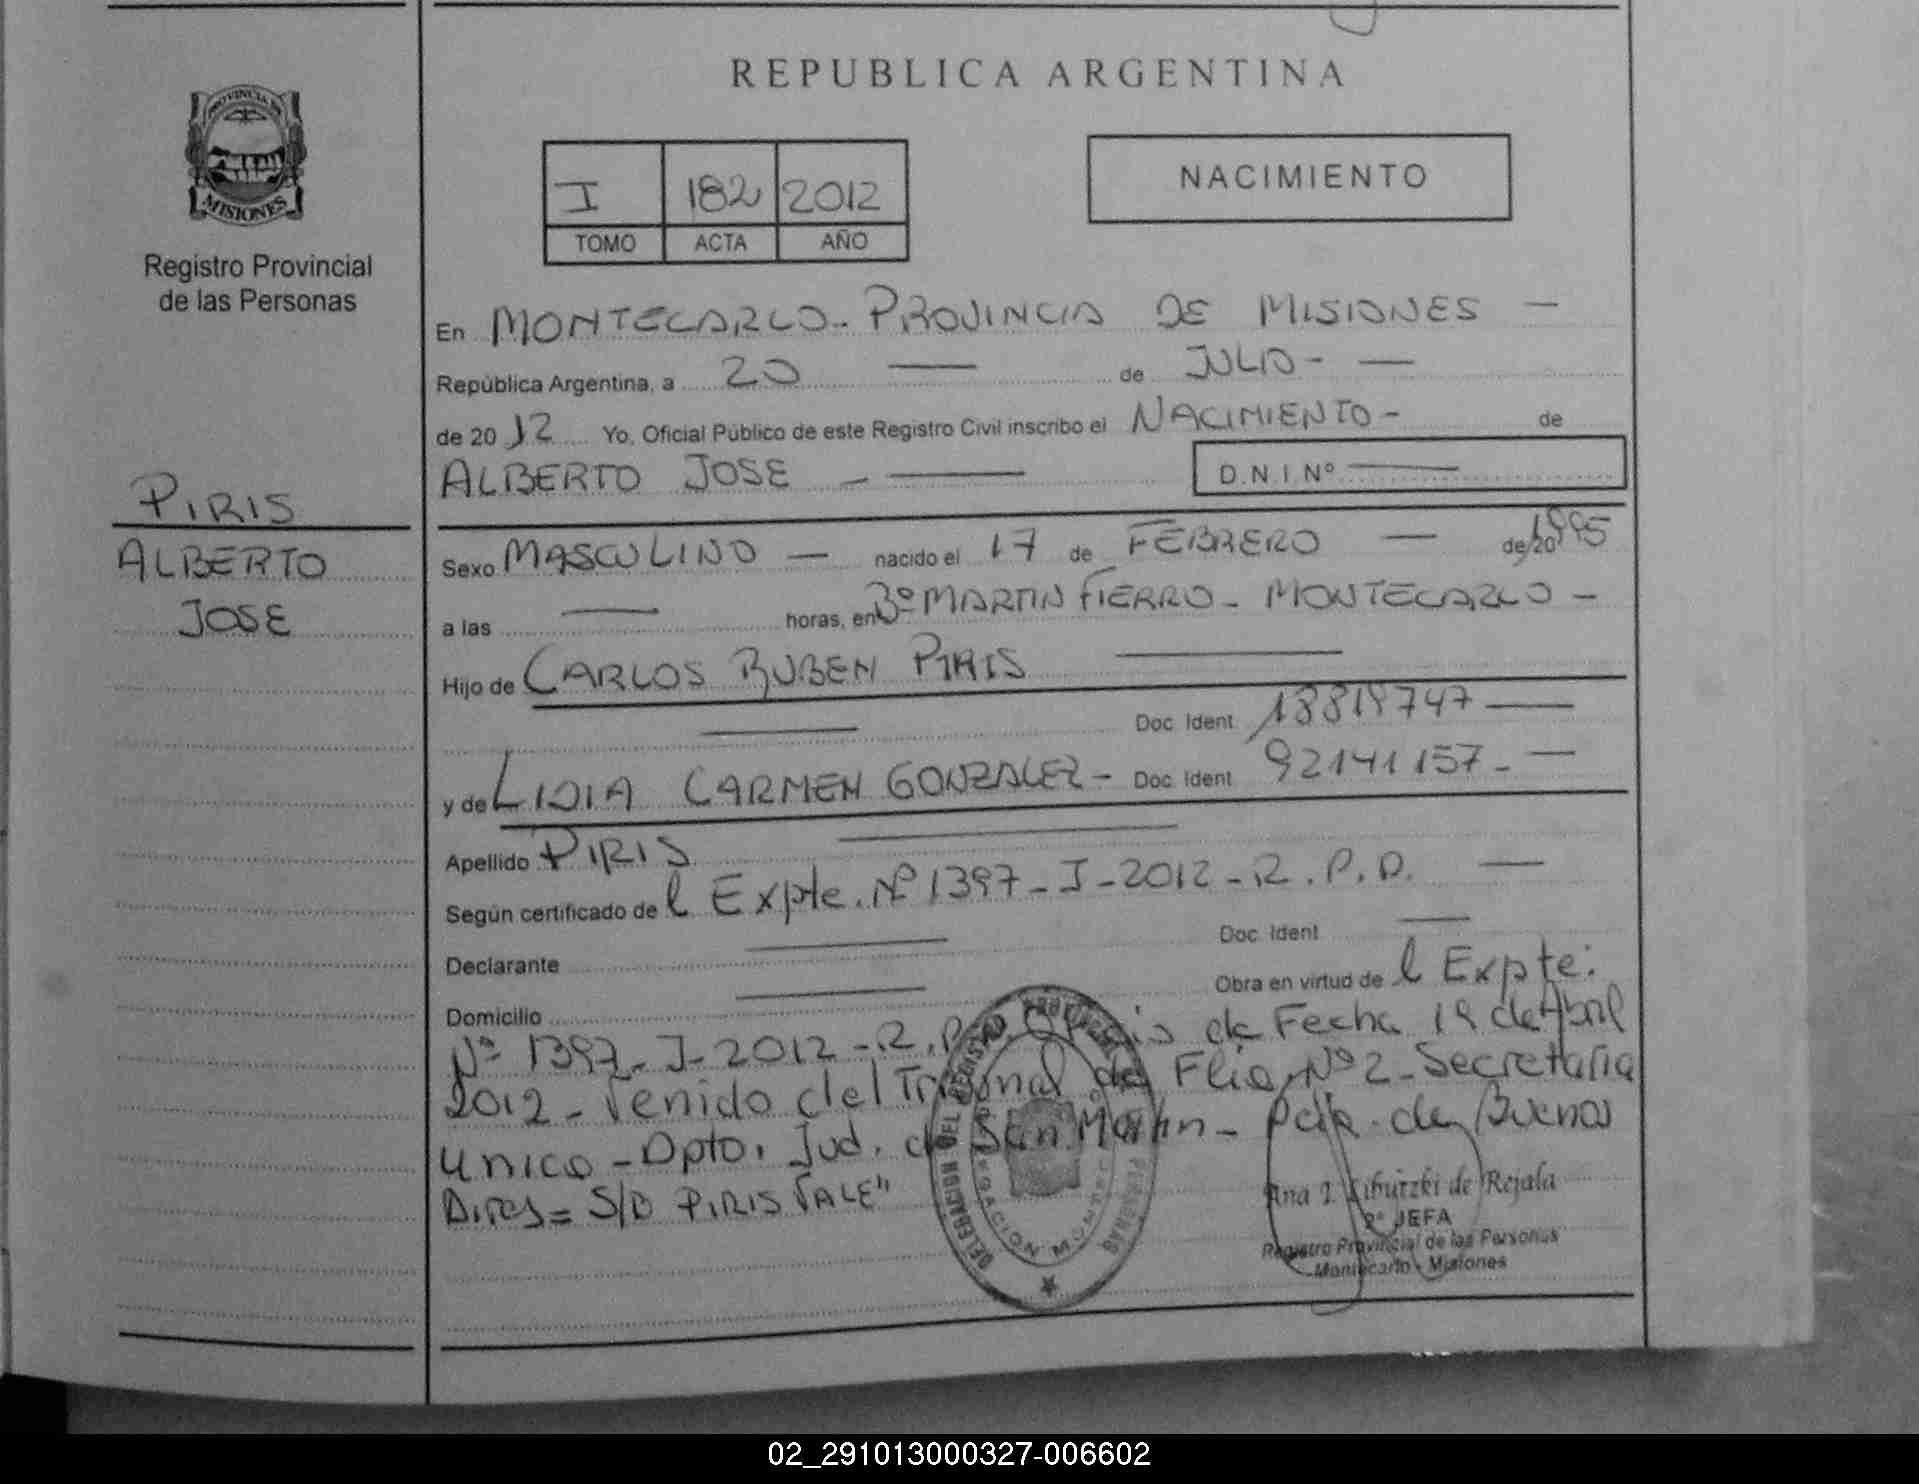 PROVINCIA DE
MISIONES
Registro Provincial
de las Personas
PIRIS
ALBERTO
JOSE
REPUBLICA ARGENTINA
I 182 2012
TOMO ACTA AÑO
NACIMIENTO
En MONTECARLO - PROVINCIA DE MISIONES —
República Argentina, a 20 — de JULIO - —
de 2012 Yo, Oficial Público de este Registro Civil inscribo el NACIMIENTO - de
ALBERTO JOSE - — D.N.I. Nº —
Sexo MASCULINO — nacido el 17 de FEBRERO — de 20 1995
a las — horas, en Bº MARTIN FIERRO - MONTECARLO -
Hijo de CARLOS RUBEN PIRIS —
— Doc. Ident. 18819747 —
y de LIDIA CARMEN GONZALEZ - Doc. Ident. 92141157 - —
Apellido PIRIS —
Según certificado de l Expte. Nº 1397 - I - 2012 - R. P. P. —
Declarante — Doc. Ident. —
Domicilio — Obra en virtud de l Expte:
Nº 1397 - I - 2012 - R. P. de Fecha 19 de Abril
2012 - Venido del Tribunal de Flia Nº 2 - Secretaria
Unica - Dpto. Jud. de San Martin - Pcia. de Buenos
Aires = S/B PIRIS VALE"
DELEGACION DEL REGISTRO
Ana I. de Rejala
2º JEFA
Registro Provincial de las Personas
Montecarlo - Misiones
02_291013000327-006602